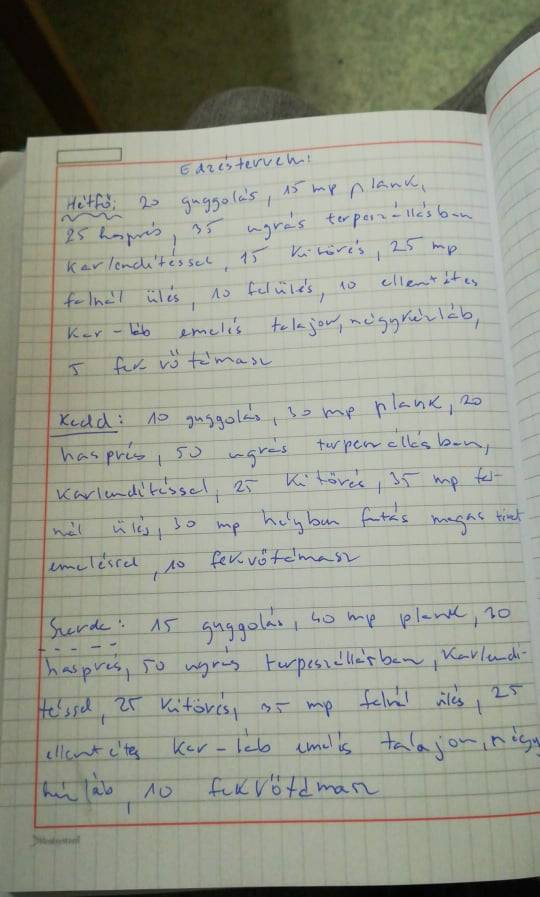 Edzéstervem:
Hétfő: 20 guggolás, 15 mp plank,
25 hasprés, 35 ugrás terpeszállásban
Karlendítéssel, 15 Kitörés, 25 mp
falnál ülés, 10 felülés, 10 ellentétes
Kar-láb emelés talajon, négykézláb,
5 fekvőtámasz
Kedd: 10 guggolás, 30 mp plank, 20
hasprés, 50 ugrás terpeszállásban,
Karlendítéssel, 25 Kitörés, 35 mp fal-
nál ülés, 30 mp helyben futás magas térd
emeléssel, 10 fekvőtámasz
Szerda: 15 guggolás, 40 mp plank, 30
hasprés, 50 ugrás terpeszállásban, Karlendí-
téssel, 25 Kitörés, 35 mp falnál ülés, 25
ellentétes Kar-láb emelés talajon, négy
kézláb, 10 fekvőtámasz